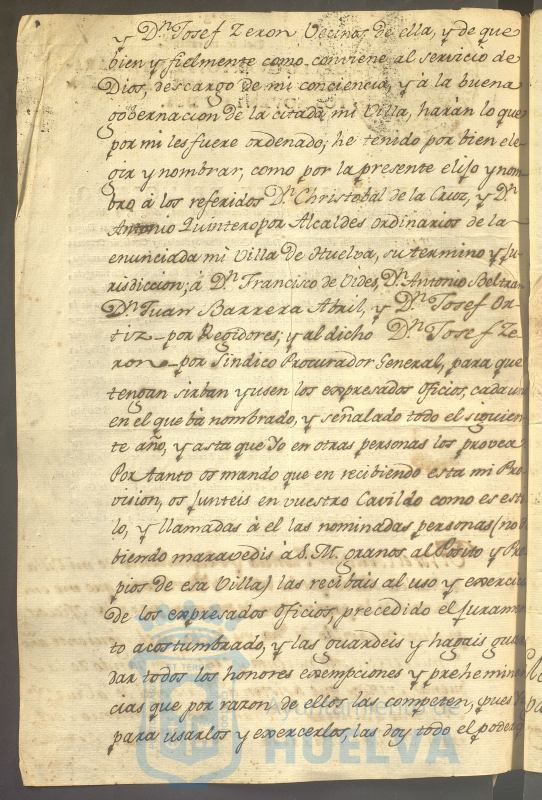 y Dn. Josef Zeron Vecinos de ella, y de que
bien y fielmente como conviene al servicio de
Dios, descargo de mi conciencia, y à la buena
gobernacion de la citada mi Villa, haràn lo que
por mi les fuere ordenado; he tenido por bien ele
gir y nombrar, como por la presente elijo y nom
bro à los referidos Dn. Christobal de la Cruz, y Dn.
Antonio Quintero por Alcaldes ordinarios de la
enunciada mi Villa de Huelva, su termino y Ju
risdiccion; à Dn. Francisco de Vides, Dn. Antonio Beltran
Dn. Juan Barrera Abril, y Dn. Josef Or
tiz por Regidores; y al dicho Dn. Josef Ze
ron por Sindico Procurador General, para que
tengan sirban y usen los expresados oficios, cada un
en el que bà nombrado, y señalado todo el siguien
te año, y asta que Yo en otras personas los provea
Por tanto os mando que en recibiendo esta mi Pro
vision, os Junteis en vuestro Cavildo como es esti
lo, y llamadas à el las nominadas personas (no
biendo maravedis à S. M. granos al Posito y Pro
pios de esa Villa) las recibais al uso y exercic
de los expresados oficios, precedido el Juramen
to acostumbrado, y las guardeis y hagais guar
dar todos los honores exempciones y preheminen
cias que por razon de ellos las competen, pues
para usarlos y exercerlos, las doy todo el poder q
ET TERRAE
Ayuntamiento de
HUELVA